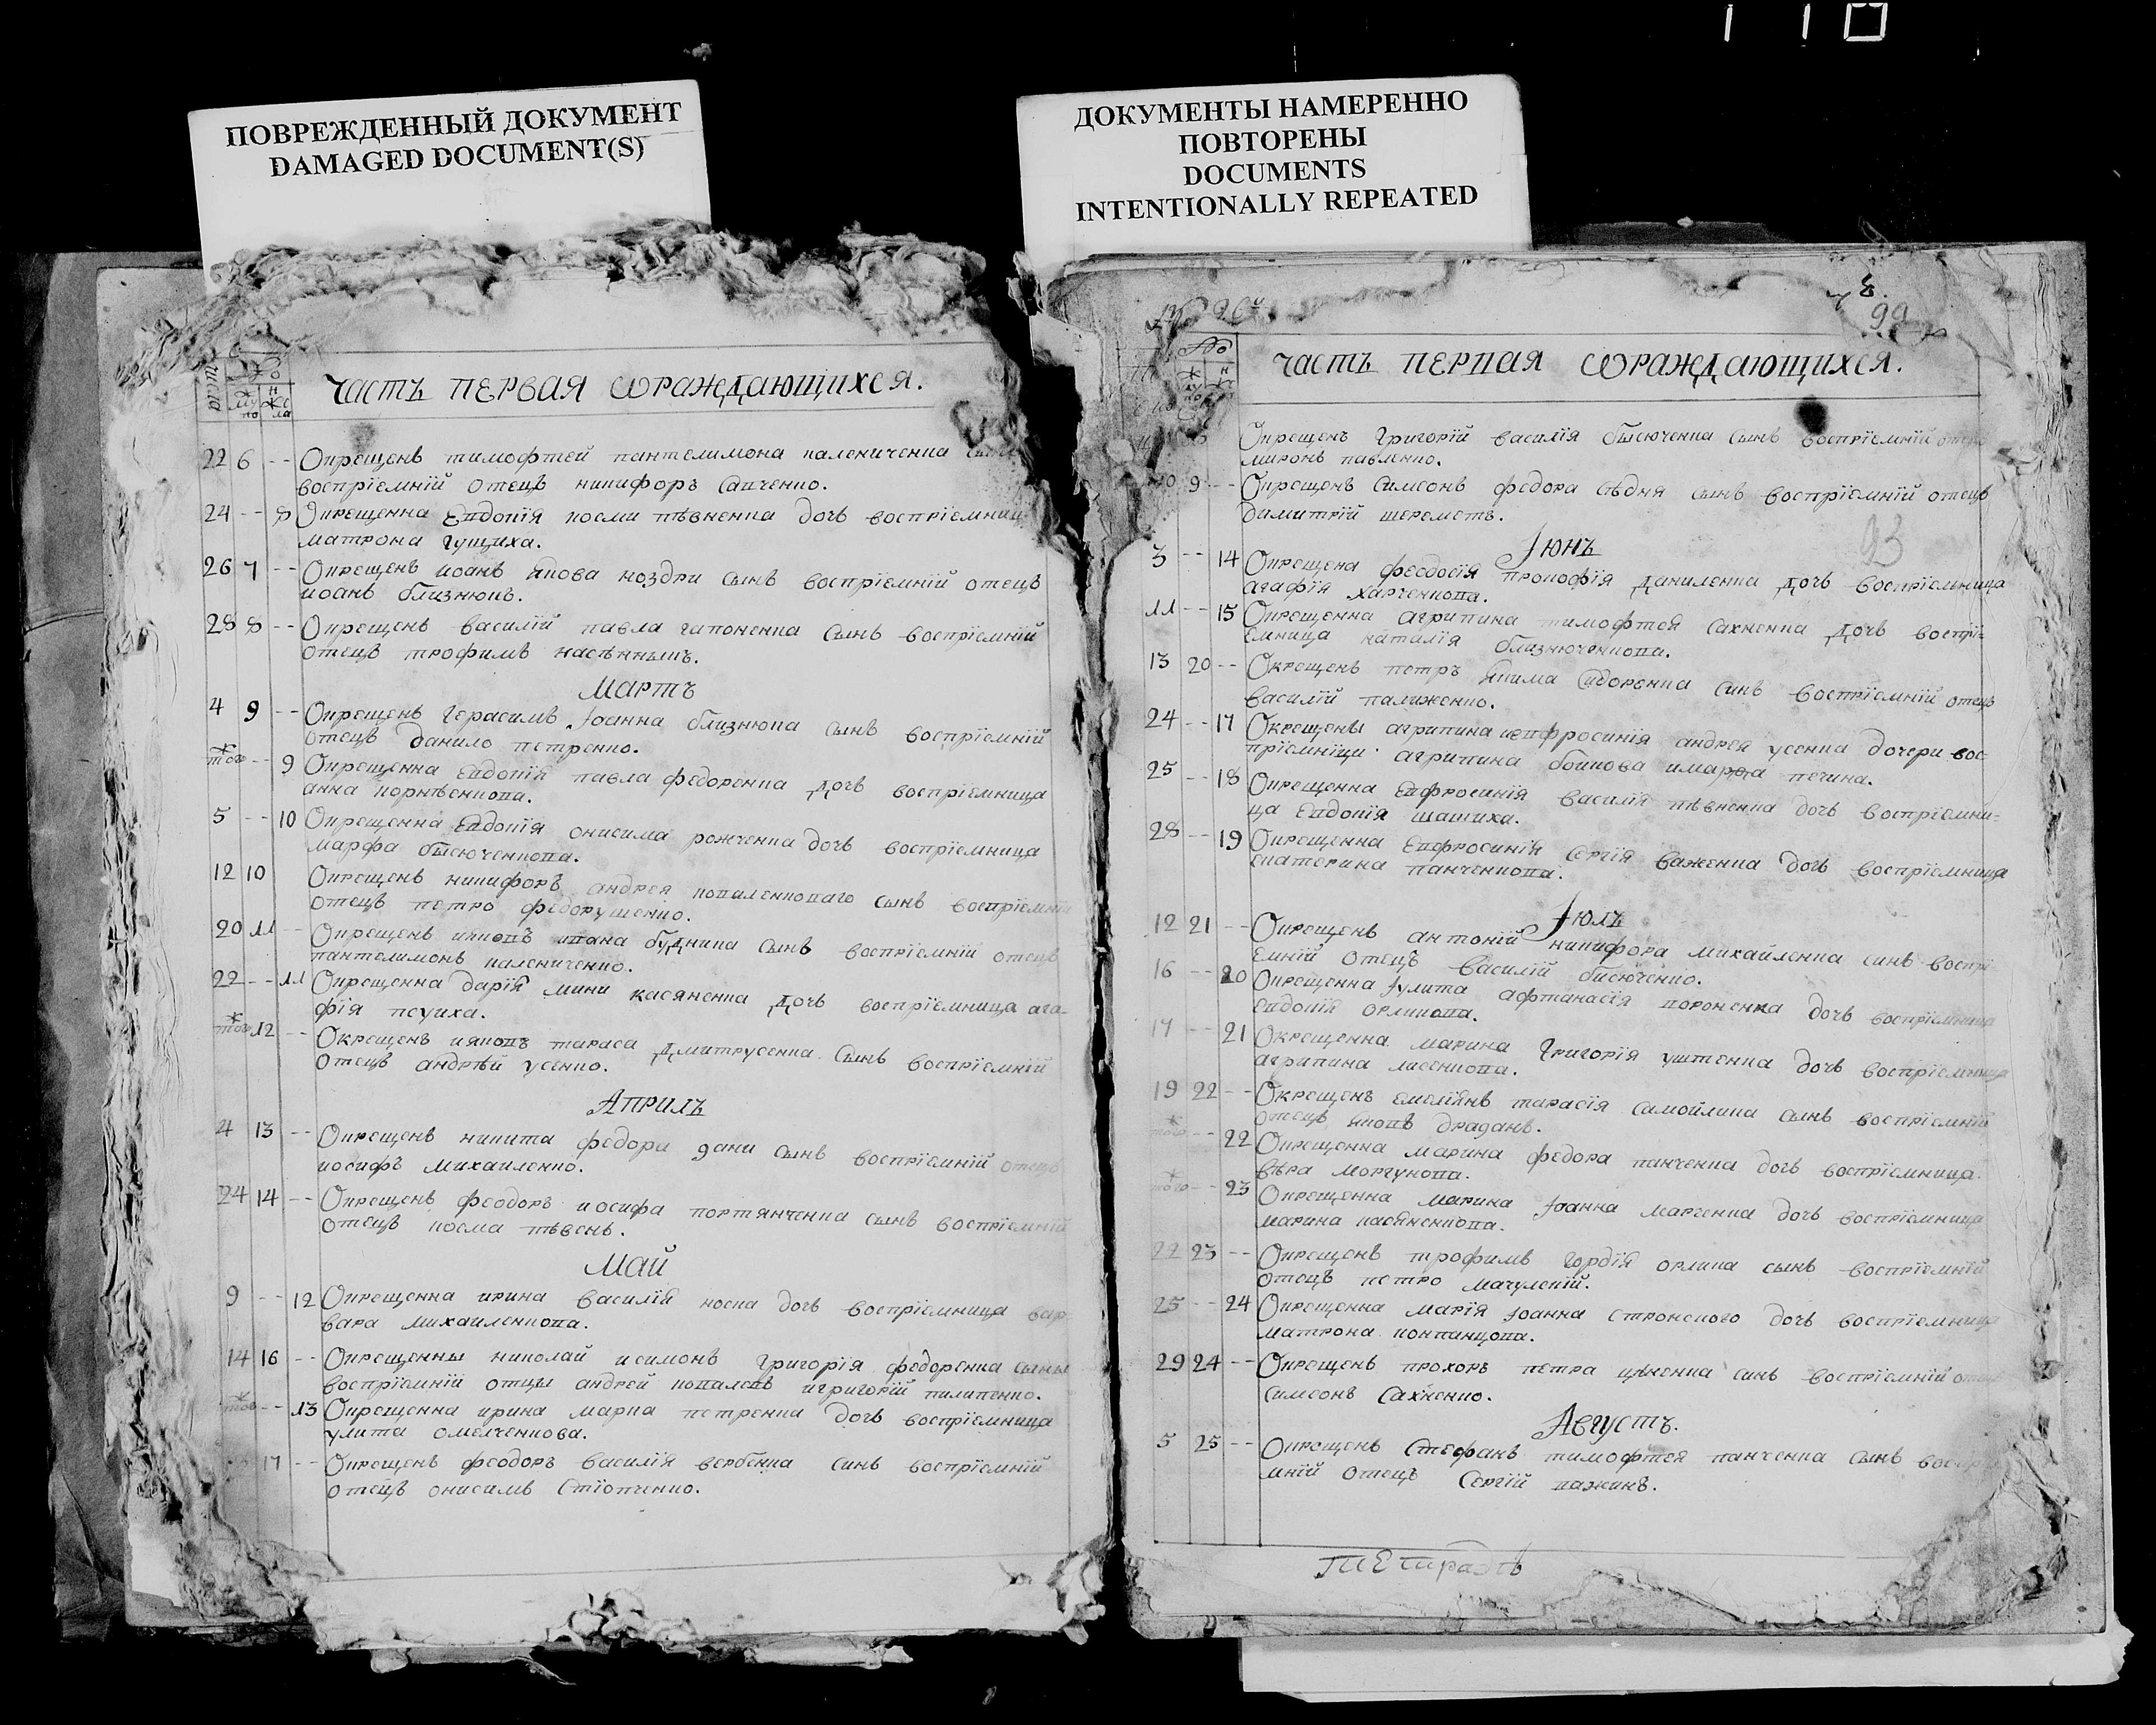 ПОВРЕЖДЕННЫЙ ДОКУМЕНТ
DAMAGED DOCUMENT(S)
ДОКУМЕНТЫ НАМЕРЕННО
ПОВТОРЕНЫ
DOCUMENTS
INTENTIONALLY REPEATED
часть первая ѡраждающихся.
22 6 -- Окрещенъ тимофтей пантелимона калениченка сынъ
воспрїемнїй отецъ никифоръ савченко.
24 -- 8 Окрещенна Евдокїя косми пѣвненка дочъ воспрїемница
матрона гущиха.
26 7 -- Окрещенъ иоанъ якова ноздри сынъ воспрїемнїй отецъ
иоанъ близнюкъ.
28 8 -- Окрещенъ василїй павла гапоненка сынъ воспрїемнїй
отецъ трофимъ насѣнникъ.
Мартъ
4 9 -- Окрещенъ герасимъ Іоанна близнюка сынъ воспрїемнїй
отецъ данило петренко.
тогож -- 9 Окрещенна евдокїя павла федоренка дочъ воспрїемница
анна корнѣенкова.
5 -- 10 Окрещенна евдокїя онисима рожченка дочъ воспрїемница
марфа бысюченкова.
12 10 Окрещенъ никифоръ андрея коваленковаго сынъ воспрїемнїй
отецъ петро федорущенко.
20 11 -- Окрещенъ ияковъ ивана будника сынъ воспрїемнїй отецъ
пантелимонъ калениченко.
22 -- 11 Окрещенна дарїя мини касяненка дочъ воспрїемница ага-
фїя псуиха.
тогож 12 -- Окрещенъ ияковъ тараса дмитрусенка сынъ воспрїемнїй
отецъ андрѣй усенко.
Априлъ
4 13 -- Окрещенъ никита федора дани сынъ воспрїемнїй отецъ
иосифъ михаиленко.
24 14 -- Окрещенъ феодоръ иосифа портянченка сынъ воспрїемнїй
отецъ косма пѣвень.
Май
9 -- 12 Окрещенна ирина василїя носка дочъ воспрїемница вар
вара михаиленкова.
14 16 -- Окрещенны николай исимонъ григорїя федоренка сыны
воспрїемнїй отцы андрей ковалевъ игригорїй пилипенко.
тогож -- 13 Окрещенна ирина марка петренка дочъ воспрїемница
улита омелченкова.
17 -- Окрещенъ феодоръ василїя вербенка синъ воспрїемнїй
отецъ онисимъ Стїопченко.
99
часть первая ѡраждающихся.
Окрещенъ григорїй василїя бысюченка сынъ воспрїемнїй отецъ
миронъ павленко.
9 -- Окрещенъ Симеонъ федора сѣдня сынъ воспрїемнїй отецъ
димитрїй шереметъ.
93
Іюнъ
3 -- 14 Окрещена феодосїя прокофїя даниленка дочъ воспрїемница
агафїя харченкова.
11 -- 15 Окрещенна агрипина тимофтея сахненка дочъ воспрї-
емница наталїя близнюченкова.
13 20 -- Окрещенъ петръ якима Сидоренка синъ воспрїемнїй отецъ
василїй палиженко.
24 -- 17 Окрещены агрипина иевфросинїя андрея усенка дочери вос
прїемници агрипина бойкова имарфа печина.
25 -- 18 Окрещенна Евфросинїя василїя пѣвненка дочъ воспрїемни-
ца Евдокїя шашиха.
28 -- 19 Окрещенна Евфросинїя Сергїя важенка дочъ воспрїемница
екатерина панченкова.
Іюлъ
12 21 -- Окрещенъ антонїй никифора михайленка синъ воспрї
емнїй отецъ василїй бисюченко.
16 -- 20 Окрещенна Іулита афтанасїя вороненка дочъ воспрїемница
евдокїя орликова.
17 -- 21 Окрещенна марина григорїя уштенка дочъ воспрїемница
агрипина лисенкова.
19 22 -- Окрещенъ емелїянъ тарасїя самойлика сынъ воспрїемнїй
отецъ яковъ драганъ.
тогож -- 22 Окрещенна марина федора панченка дочъ воспрїемница.
вѣра моргунова.
тогож -- 23 Окрещенна марина Іоанна марченка дочъ воспрїемница
марина касяненкова.
22 23 -- Окрещенъ трофимъ гордїя орлика сынъ воспрїемнїй
отецъ петро мачулскїй.
25 -- 24 Окрещенна марїя Іоанна стронского дочъ воспрїемница
матрона конпанцова.
29 24 -- Окрещенъ прохоръ петра цѣненка синъ воспрїемнїй отецъ
симеонъ Сахненко.
Августъ.
5 25 -- Окрещенъ Стефанъ тимофтея панченка сынъ воспрїе
мнїй отецъ Сергїй важикъ.
тЕтрадъ